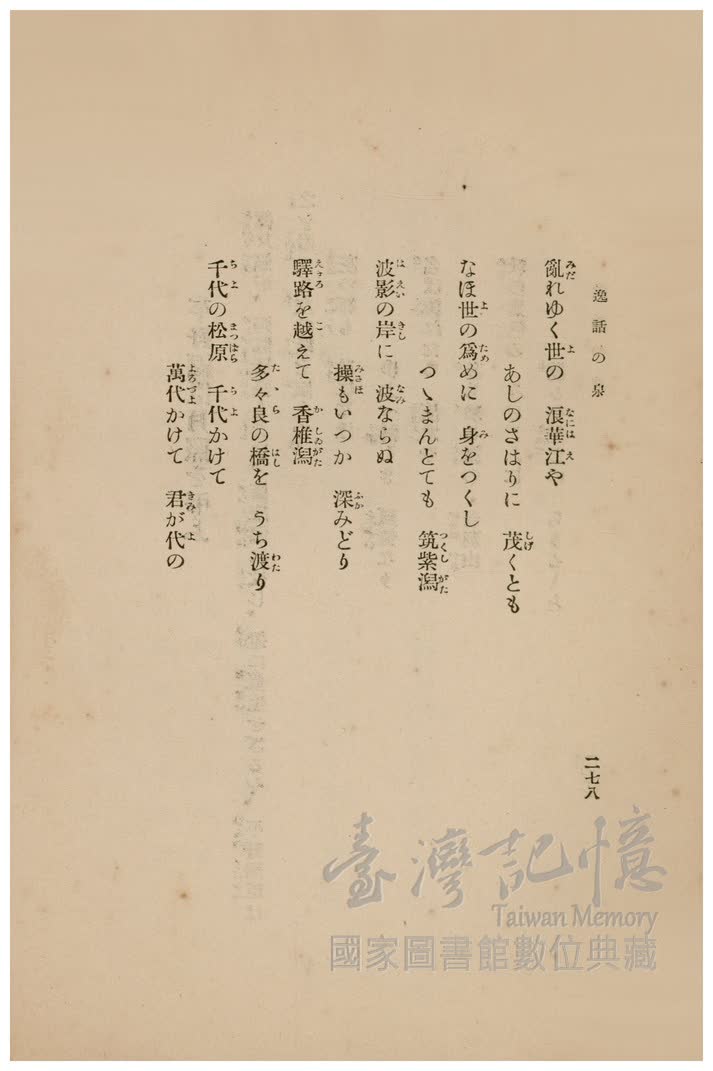 逸話の泉
亂れゆく世の　浪華江や
あしのさはりに　茂くとも
なほ世の爲めに　身をつくし
つゝまんとても　筑紫潟
波影の岸に　波ならぬ
操もいつか　深みどり
驛路を越えて　香椎潟
多々良の橋を　うち渡り
千代の松原　千代かけて
萬代かけて　君が代の
二七八
臺灣記憶
Taiwan Memory
國家圖書館數位典藏